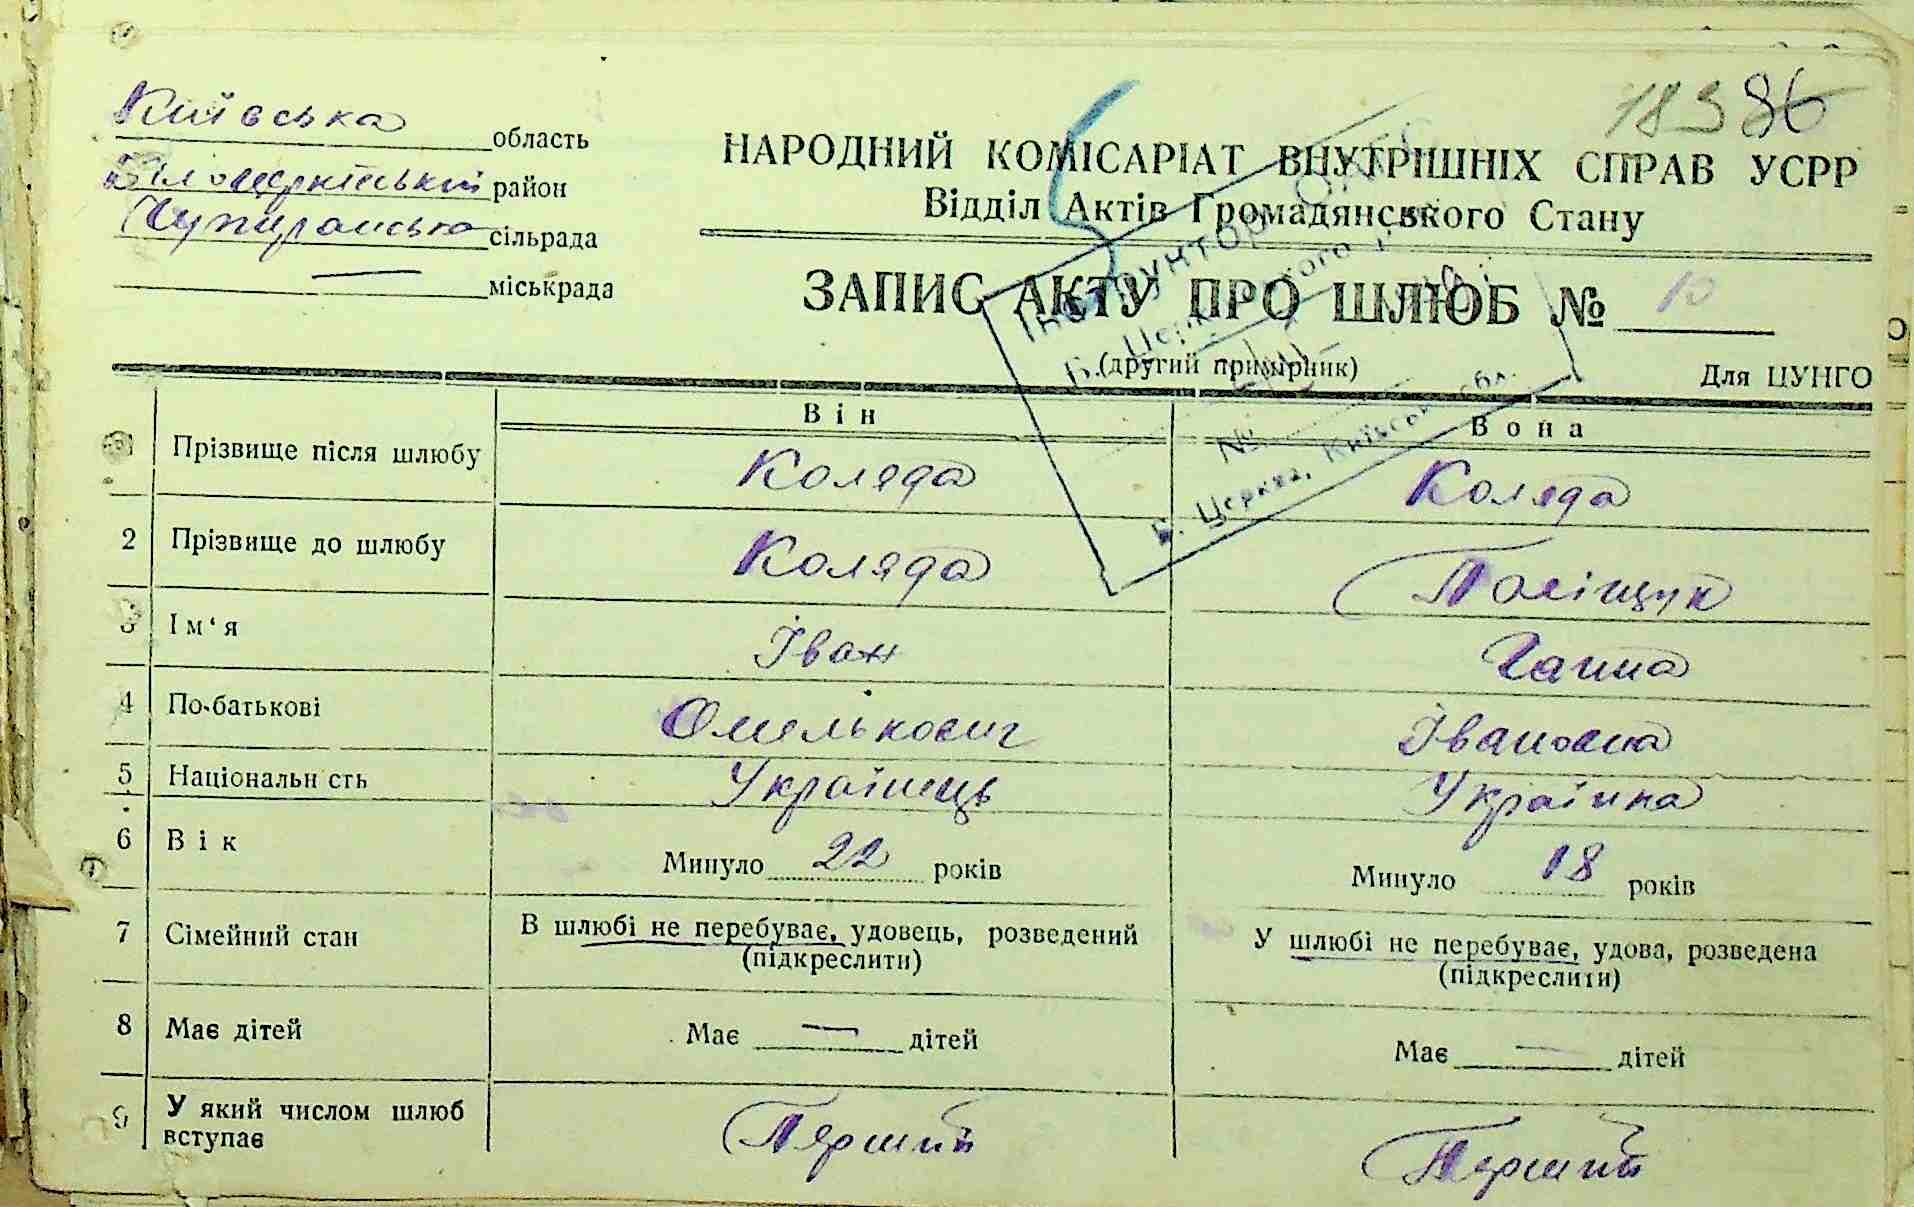 183 86
Київська область
Білоцерківський район
Чупирянська сільрада
— міськрада
НАРОДНИЙ КОМІСАРІАТ ВНУТРІШНІХ СПРАВ УСРР
Відділ Актів Громадянського Стану
ЗАПИС АКТУ ПРО ШЛЮБ № 10
(другий примірник)
Для ЦУНГО
Він Вона
Прізвище після шлюбу Коляда Коляда
2 Прізвище до шлюбу Коляда Поліщук
3 Ім‘я Іван Ганна
4 По-батькові Омелькович Івановна
5 Національн сть Українець Українка
6 Вік Минуло 22 років Минуло 18 років
7 Сімейний стан В шлюбі не перебуває, удовець, розведений У шлюбі не перебуває, удова, розведена
(підкреслити) (підкреслити)
8 Має дітей Має — дітей Має — дітей
9 У який числом шлюб Перший Перший
вступає
Інструктор
№
Б. Церква, Київської обл.